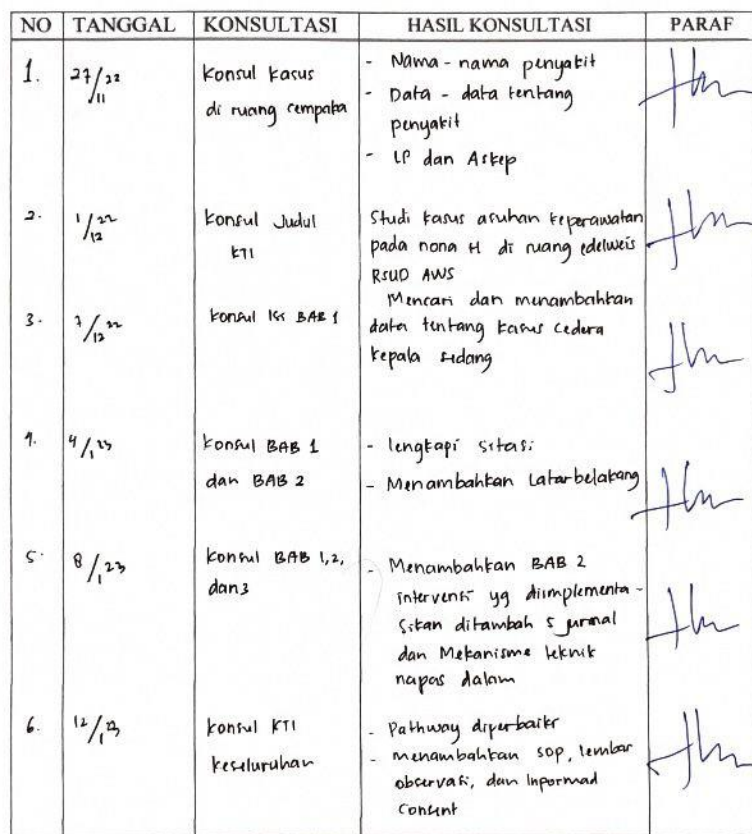 NO TANGGAL KONSULTASI HASIL KONSULTASI PARAF
1. 27/11 22 Konsul Kasus di ruang cempaka
- Nama - nama penyakit
- Data - data tentang
penyakit
- LP dan Askep
2. 1/12 22 Konsul Judul KTI
Studi kasus asuhan keperawatan
pada nona H di ruang edelweis
RSUD AWS
3. 7/12 22 Konsul Isi BAB 1
Mencari dan menambahkan
data tentang kasus cedera
kepala sedang
4. 4/1 23 Konsul BAB 1 dan BAB 2
- lengkapi sitasi
- Menambahkan Latar belakang
5. 8/1 23 Konsul BAB 1,2, dan 3
- Menambahkan BAB 2
intervensi yg diimplementa-
sikan ditambah 5 jurnal
dan Mekanisme teknik
napas dalam
6. 12/1 23 Konsul KTI keseluruhan
- Pathway diperbaiki
- menambahkan SOP, lembar
observasi, dan Inpormad
Consent